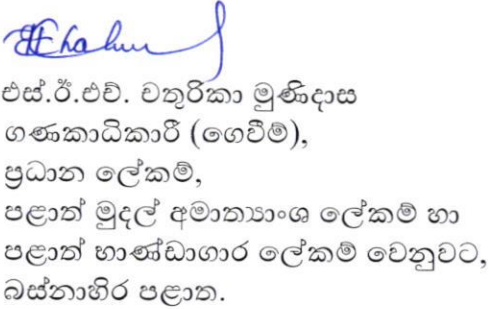 එස්.ඊ.එච්. චතුරිකා මුණිදාස
ගණකාධිකාරී (ගෙවීම්),
ප්‍රධාන ලේකම්,
පළාත් මුදල් අමාත්‍යාංශ ලේකම් හා
පළාත් භාණ්ඩාගාර ලේකම් වෙනුවට,
බස්නාහිර පළාත.